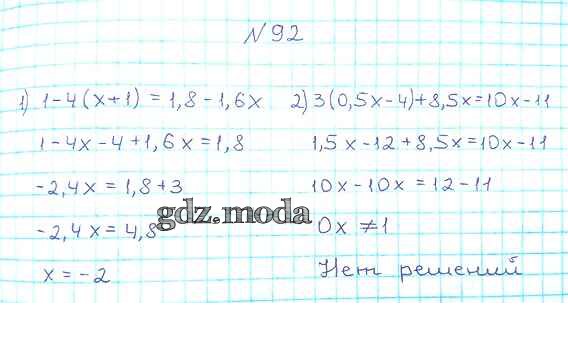 N 92
1) 1-4(x+1) = 1,8-1,6x
1-4x-4+1,6x=1,8
-2,4x = 1,8+3
-2,4x = 4,8
x = -2
2) 3(0,5x-4)+8,5x=10x-11
1,5x-12+8,5x=10x-11
10x-10x = 12-11
0x ≠ 1
Нет решений
gdz.moda